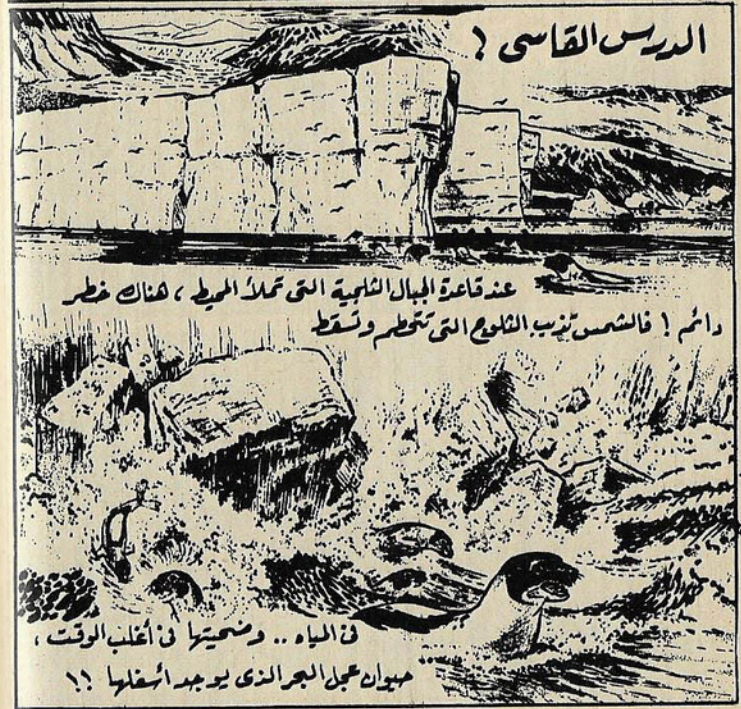 الدرس القاسى !
عند قاعدة الجبال الثلجية التى تملأ المحيط ، هناك خطر
دائم ! فالشمس تذيب الثلوج التى تتحطم وتسقط
فى المياه .. وضحيتها فى أغلب الوقت ،
حيوان عجل البحر الذى يوجد أسفلها !!